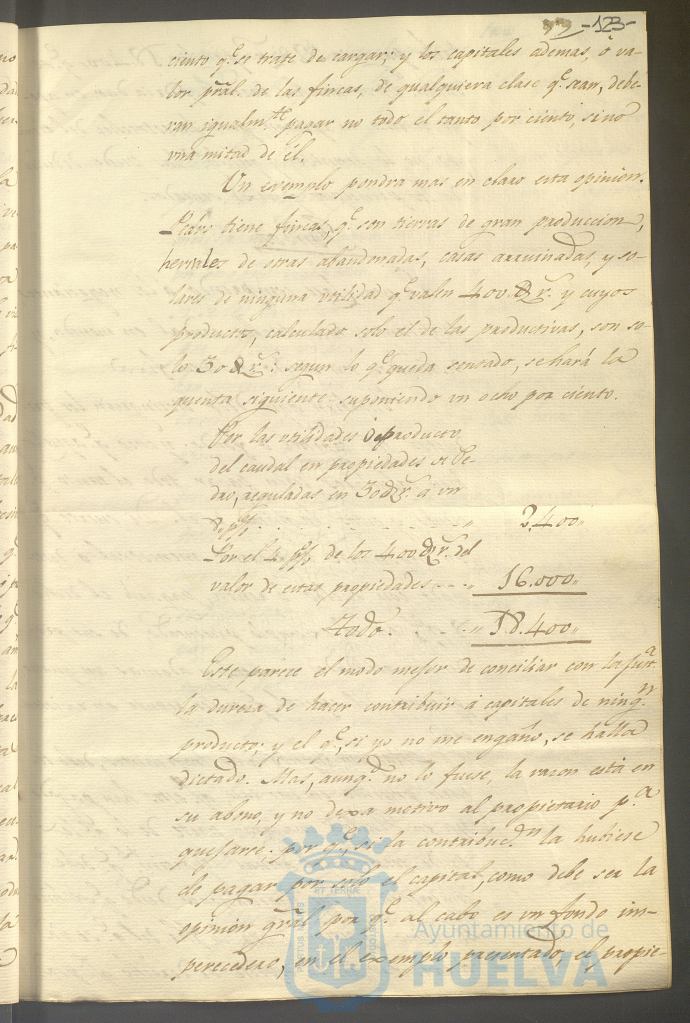 -123-
ciento q.e se trate de cargar; y los capitales ademas, ó va-
lor pral. de las fincas, de qualquiera clase q.e sean, debe-
ran igualm.te pagar no todo el tanto por ciento, sino
una mitad de él.
Un exemplo pondra mas en claro esta opinion.
Pedro tiene fincas, q.e son tierras de gran produccion,
heriales de otras abandonadas, casas arruinadas, y so-
lares de ninguna utilidad q.e valen 400 r.s y cuyos
productos, calculado solo el de las productivas, son so-
lo 30 r.s: segun lo q.e queda sentado, se hará la
quenta siguiente suponiendo un ocho por ciento.
Por las utilidades ó producto
del caudal en propiedades de Pe-
dro, reguladas en 30 r.s á un
8 p% 2.400
Por el 4 p% de los 400 r.s del
valor de estas propiedades 16.000
Todo. 18.400
Este parece el modo mejor de conciliar con la just.a
la dureza de hacer contribuir á capitales de ning.n
producto; y el q.e, si yo no me engaño, se halla
dictado. Mas, aunq.e no lo fuese, la razon está en
su abono, y no dexa motivo al propietario p.a
quejarse. por q.e, si la contribuc.n la hubiese
de pagar por solo el capital, como debe ser la
opinion gral por q.e al cabo es un fondo im-
perecedero, en el exemplo presentado, el propie-
Ayuntamiento de
HUELVA